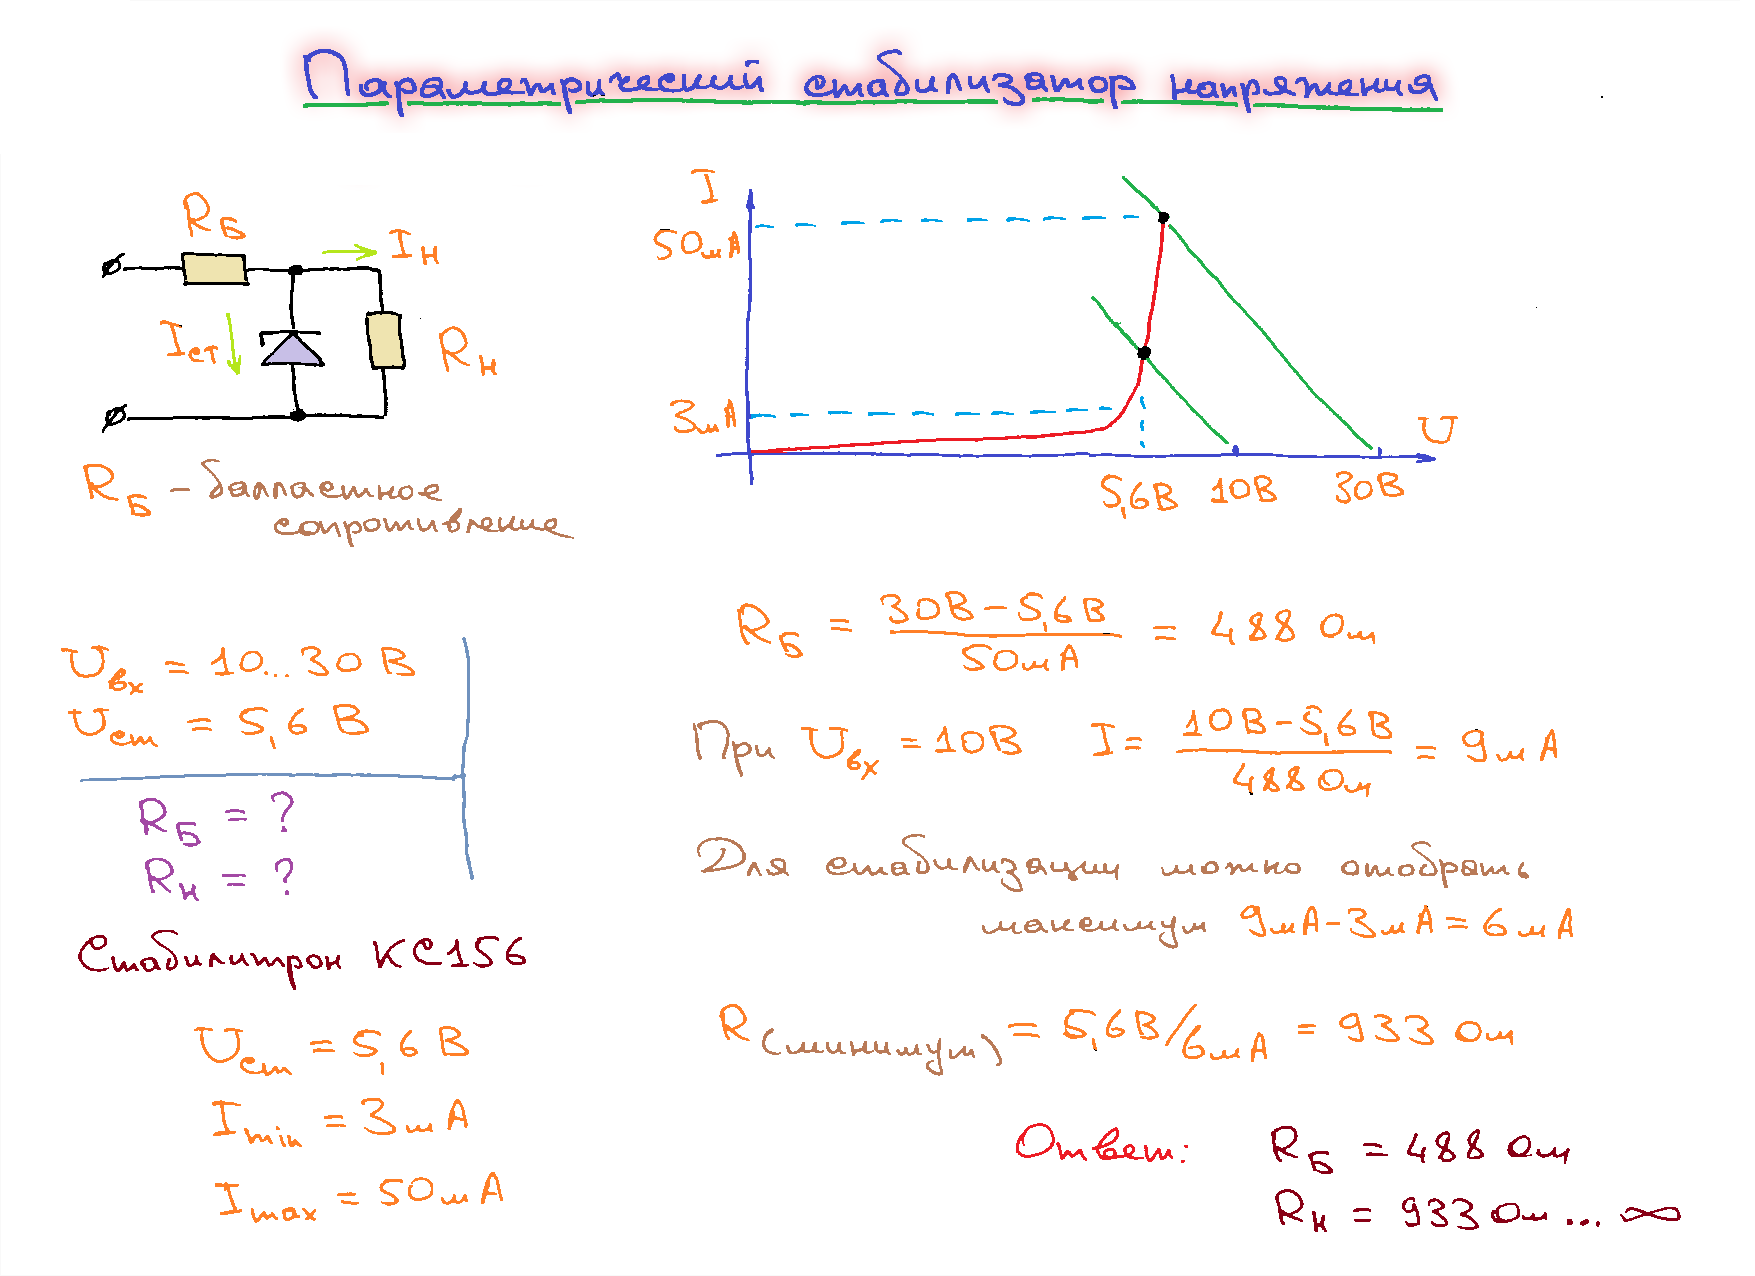 Параметрический стабилизатор напряжения
RБ
Iн
Iст
Rн
RБ – балластное
сопротивление
I
50мА
3мА
U
5,6В 10В 30В
Uвх = 10...30 В
Uст = 5,6 В
RБ = ?
Rн = ?
Стабилитрон КС156
Uст = 5,6 В
Imin = 3мА
Imax = 50мА
RБ = (30В – 5,6В) / 50мА = 488 Ом
При Uвх = 10В I = (10В – 5,6В) / 488 Ом = 9мА
Для стабилизации можно отобрать
максимум 9мА – 3мА = 6мА
R(минимум) = 5,6В/6мА = 933 Ом
Ответ: RБ = 488 Ом
Rн = 933 Ом ... ∞